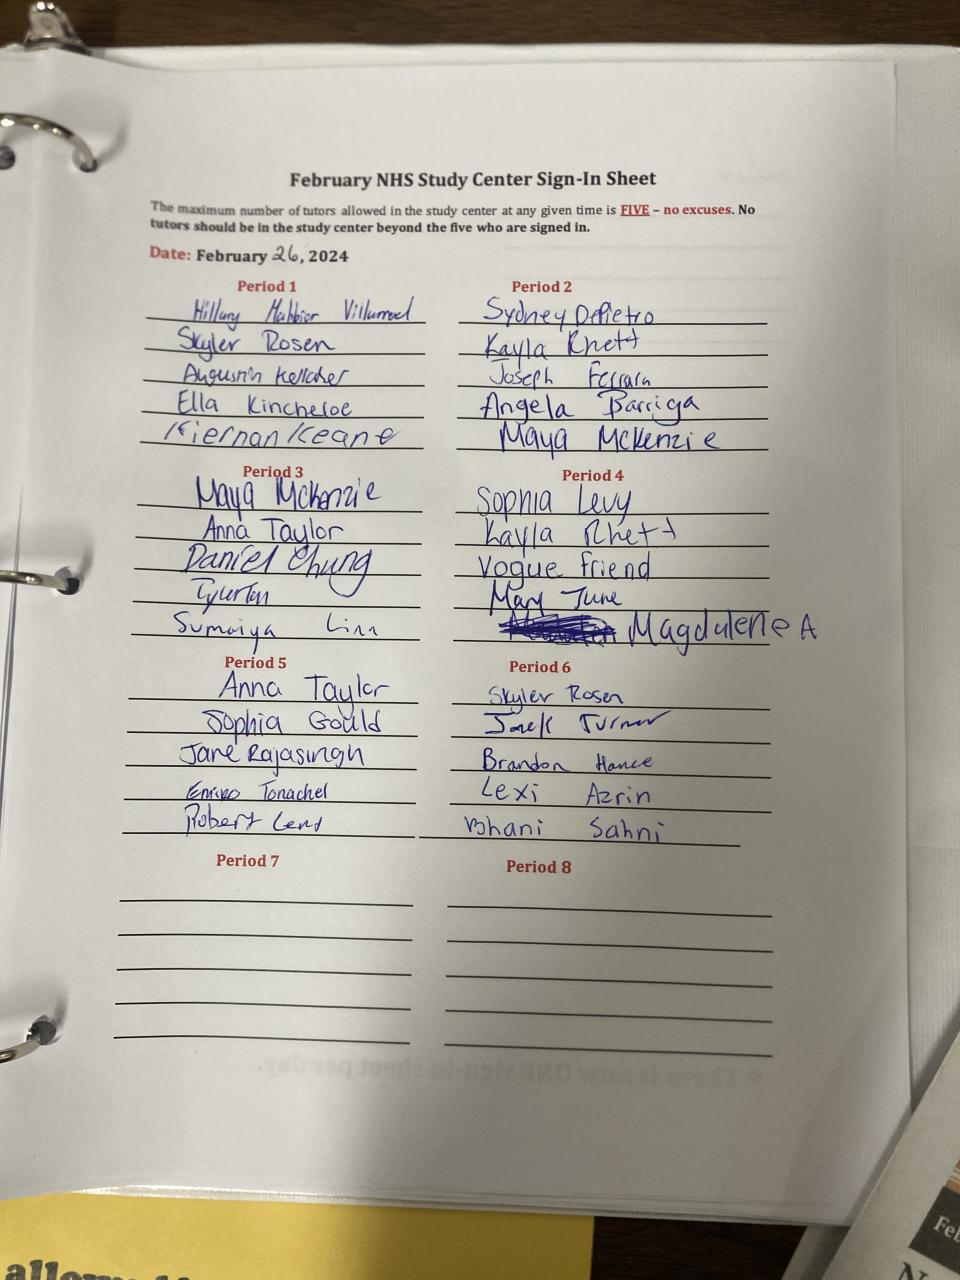 February NHS Study Center Sign-In Sheet
The maximum number of tutors allowed in the study center at any given time is FIVE – no excuses. No
tutors should be in the study center beyond the five who are signed in.
Date: February 26, 2024
Period 1
Hillary Villarroel
Skyler Rosen
Augustin Kelleher
Ella Kincheloe
Kiernan Keane
Period 2
Sydney DePietro
Kayla Rhett
Joseph Ferrara
Angela Barriga
Maya McKenzie
Period 3
Maya McKenzie
Anna Taylor
Daniel Chung
Sumaiya Linn
Period 4
Sophia Levy
Kayla Rhett
Vogue Friend
Mary June
Magdalene A
Period 5
Anna Taylor
Sophia Gould
Jane Rajasingh
Tonachel
Robert Lend
Period 6
Skyler Rosen
Jack Turner
Brandon Hance
Lexi Azrin
Bhani Sahni
Period 7
Period 8
*There is now ONE sign-in sheet per day.
Feb